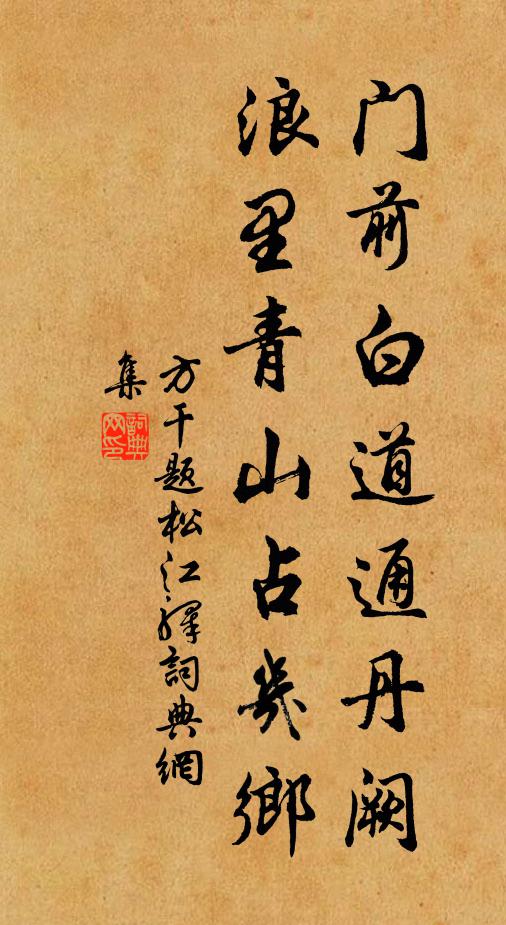 门前白道通丹阙
浪里青山占几鄉
方干题松江驛詞典網
集
詞典
网印